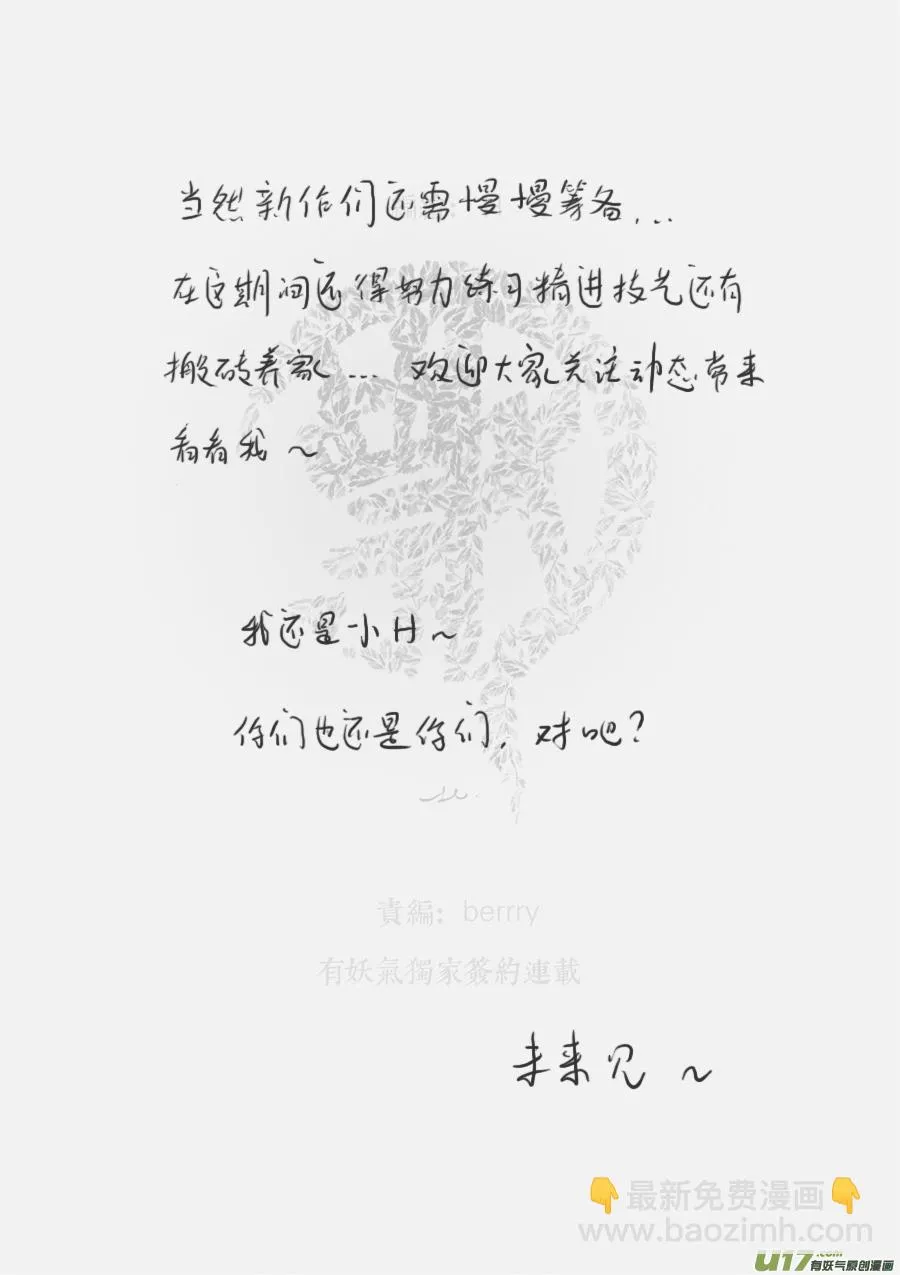 当然新作们还需慢慢筹备...
在这期间还得努力练习精进技艺还有
搬砖养家... 欢迎大家关注动态常来
看看我～
我还是小H～
你们也还是你们，对吧？
責編：berrry
有妖氣獨家簽約連載
未来见～
👇最新免费漫画👇
www.baozimh.com
U17.com
有妖气原创漫画